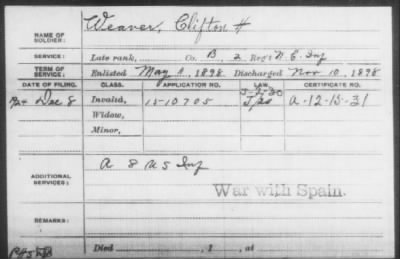 NAME OF SOLDIER: Weaver, Clifton H
SERVICE: Late rank, Co. B, 2 Reg't N. C. Inf
TERM OF SERVICE: Enlisted May 1, 1898, Discharged Nov 10, 1898
DATE OF FILING. CLASS. APPLICATION NO. LAW. CERTIFICATE NO.
Dec 8 Invalid, 1510705 A-12-15-31
Widow,
Minor,
ADDITIONAL SERVICES: A 8 U S Inf
War with Spain.
REMARKS:
Died , 1 , at